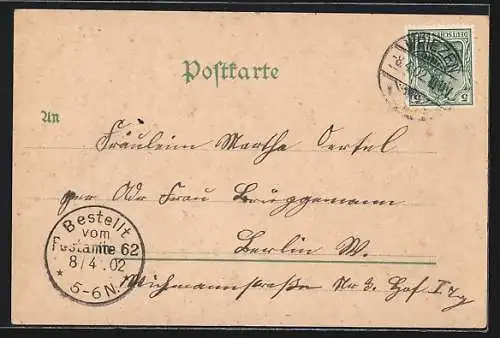 Postkarte
WRIEZEN
8.4.02
An
Fräulein Martha Oertel
per Adr Frau Brüggemann
Berlin W.
Wichmannstraße Nr 3. Hof I
Bestellt
vom
Postamte 62
8/4.02
5-6N.